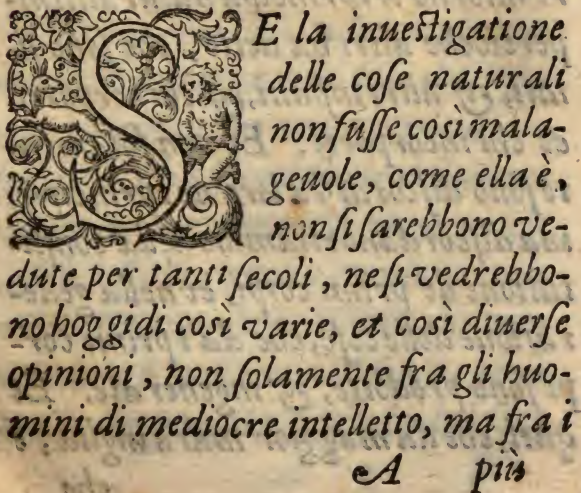 SE la inueſtigatione
delle coſe naturali
non fuſſe così mala-
geuole, come ella è,
non ſi ſarebbono ve-
dute per tanti ſecoli, ne ſi vedrebbo-
no hoggidi così varie, et così diuerſe
opinioni, non ſolamente fra gli huo-
mini di mediocre intelletto, ma fra i
A più